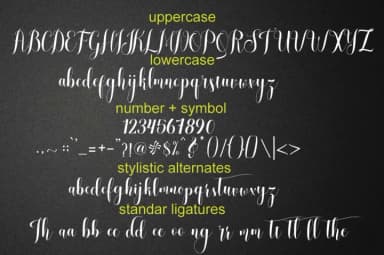 uppercase
ABCDEFGHIJKLMNOPQRSTUVWXYZ
lowercase
abcdefghijklmnopqrstuvwxyz
number + symbol
1234567890
stylistic alternates
abcdefghijklmnopqrstuvwxyz
standar ligatures
Th aa bb cc dd ee oo ng rr mm tt tl ll the